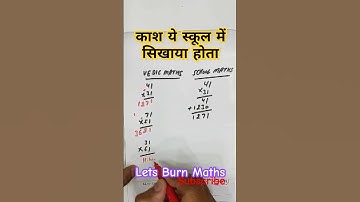 काश ये स्कूल में
सिखाया होता
VEDIC MATHS
41
x 31
1271
71
x 51
3621
31
x 61
SCHOOL MATHS
41
x 31
41
+1230
1271
Lets Burn Maths
Subscribe